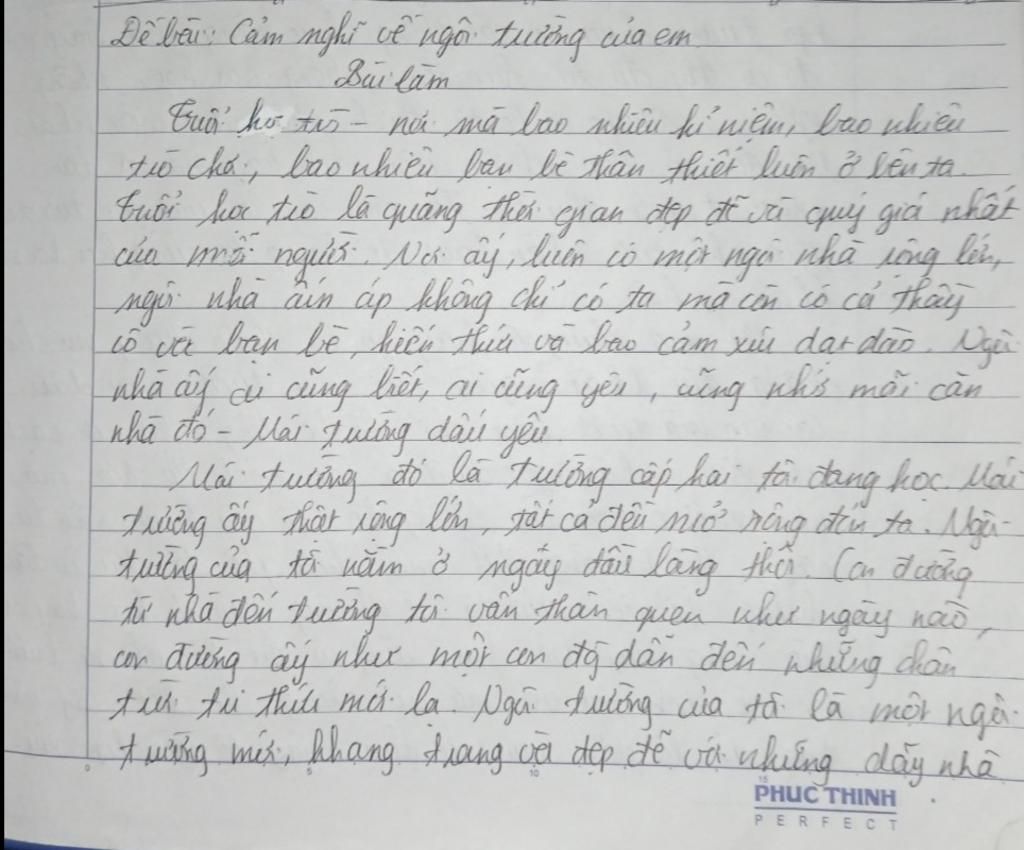 Đề bài: Cảm nghĩ về ngôi trường của em
Bài làm
Tuổi học trò - nơi mà bao nhiêu kỉ niệm, bao nhiêu
trò chơi, bao nhiêu bạn bè thân thiết luôn ở bên ta.
Tuổi học trò là quãng thời gian đẹp đẽ và quý giá nhất
của mỗi người. Nơi ấy, luôn có một ngôi nhà rộng lớn,
ngôi nhà ấm áp không chỉ có ta mà còn có cả thầy
cô và bạn bè, kiến thức và bao cảm xúc dạt dào. Ngôi
nhà ấy ai cũng biết, ai cũng yêu, cũng nhớ mỗi căn
nhà đó - Mái trường dấu yêu.
Mái trường đó là trường cấp hai tôi đang học. Mái
trường ấy thật rộng lớn, tất cả đều mở rộng đón ta. Ngôi
trường của tôi nằm ở ngay đầu làng thôi. Con đường
từ nhà đến trường tôi vẫn thân quen như ngày nào,
con đường ấy như một con đò dẫn đến những chân
trời tri thức mới lạ. Ngôi trường của tôi là một ngôi
trường mới, khang trang và đẹp đẽ với những dãy nhà
PHUC THINH
PERFECT